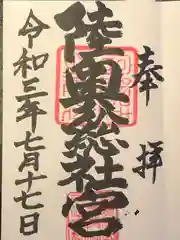 奉拝
陸奥総社宮
令和三年七月十七日